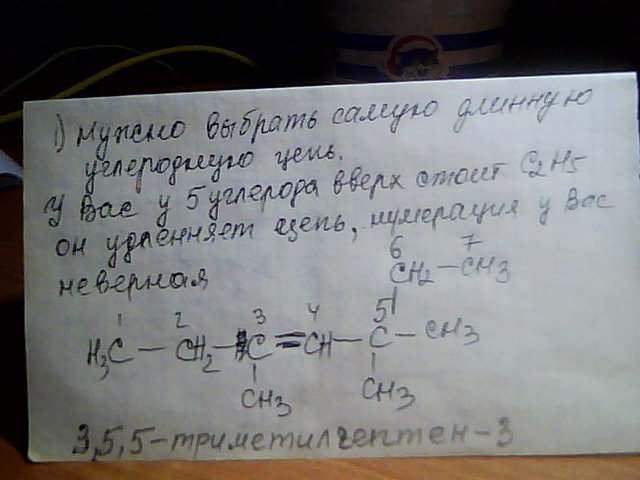 1) Нужно выбрать самую длинную
углеродную цепь.
У Вас у 5 углерода вверх стоит C2H5
он удленняет цепь, нумерация у Вас
неверная
6 7
CH2 - CH3
1 2 3 4 5
H3C - CH2 - C = CH - C - CH3
CH3 CH3
3,5,5-триметилгептен-3